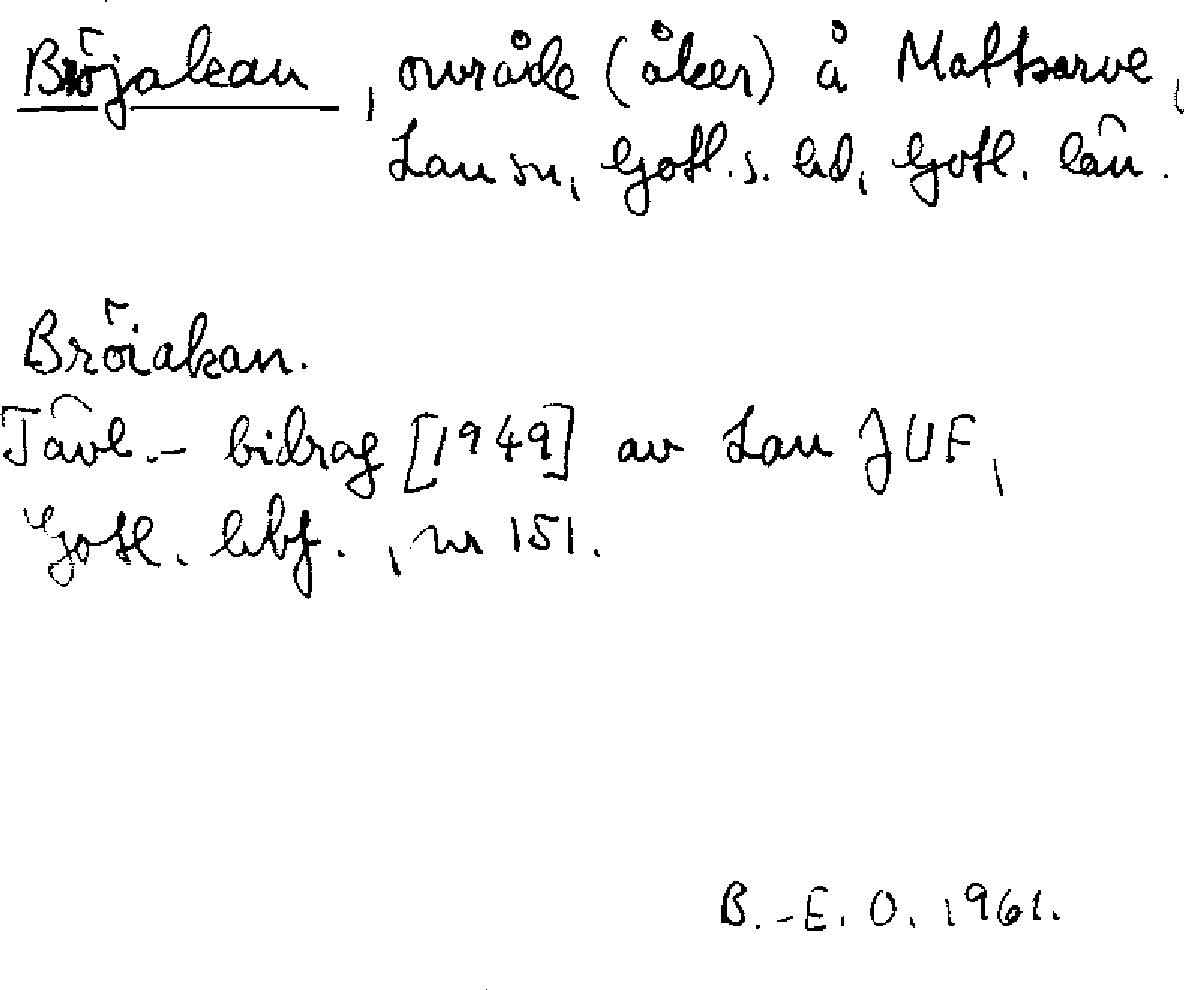 Bröjakan, område (åker) å Mattsarve,
Lau sn, Gotl. s. hd, Gotl. län.
Bröiakan.
Tävl.- bidrag [1949] av Lau JUF,
Gotl. hbf., nr 151.
B.-E. O. 1961.